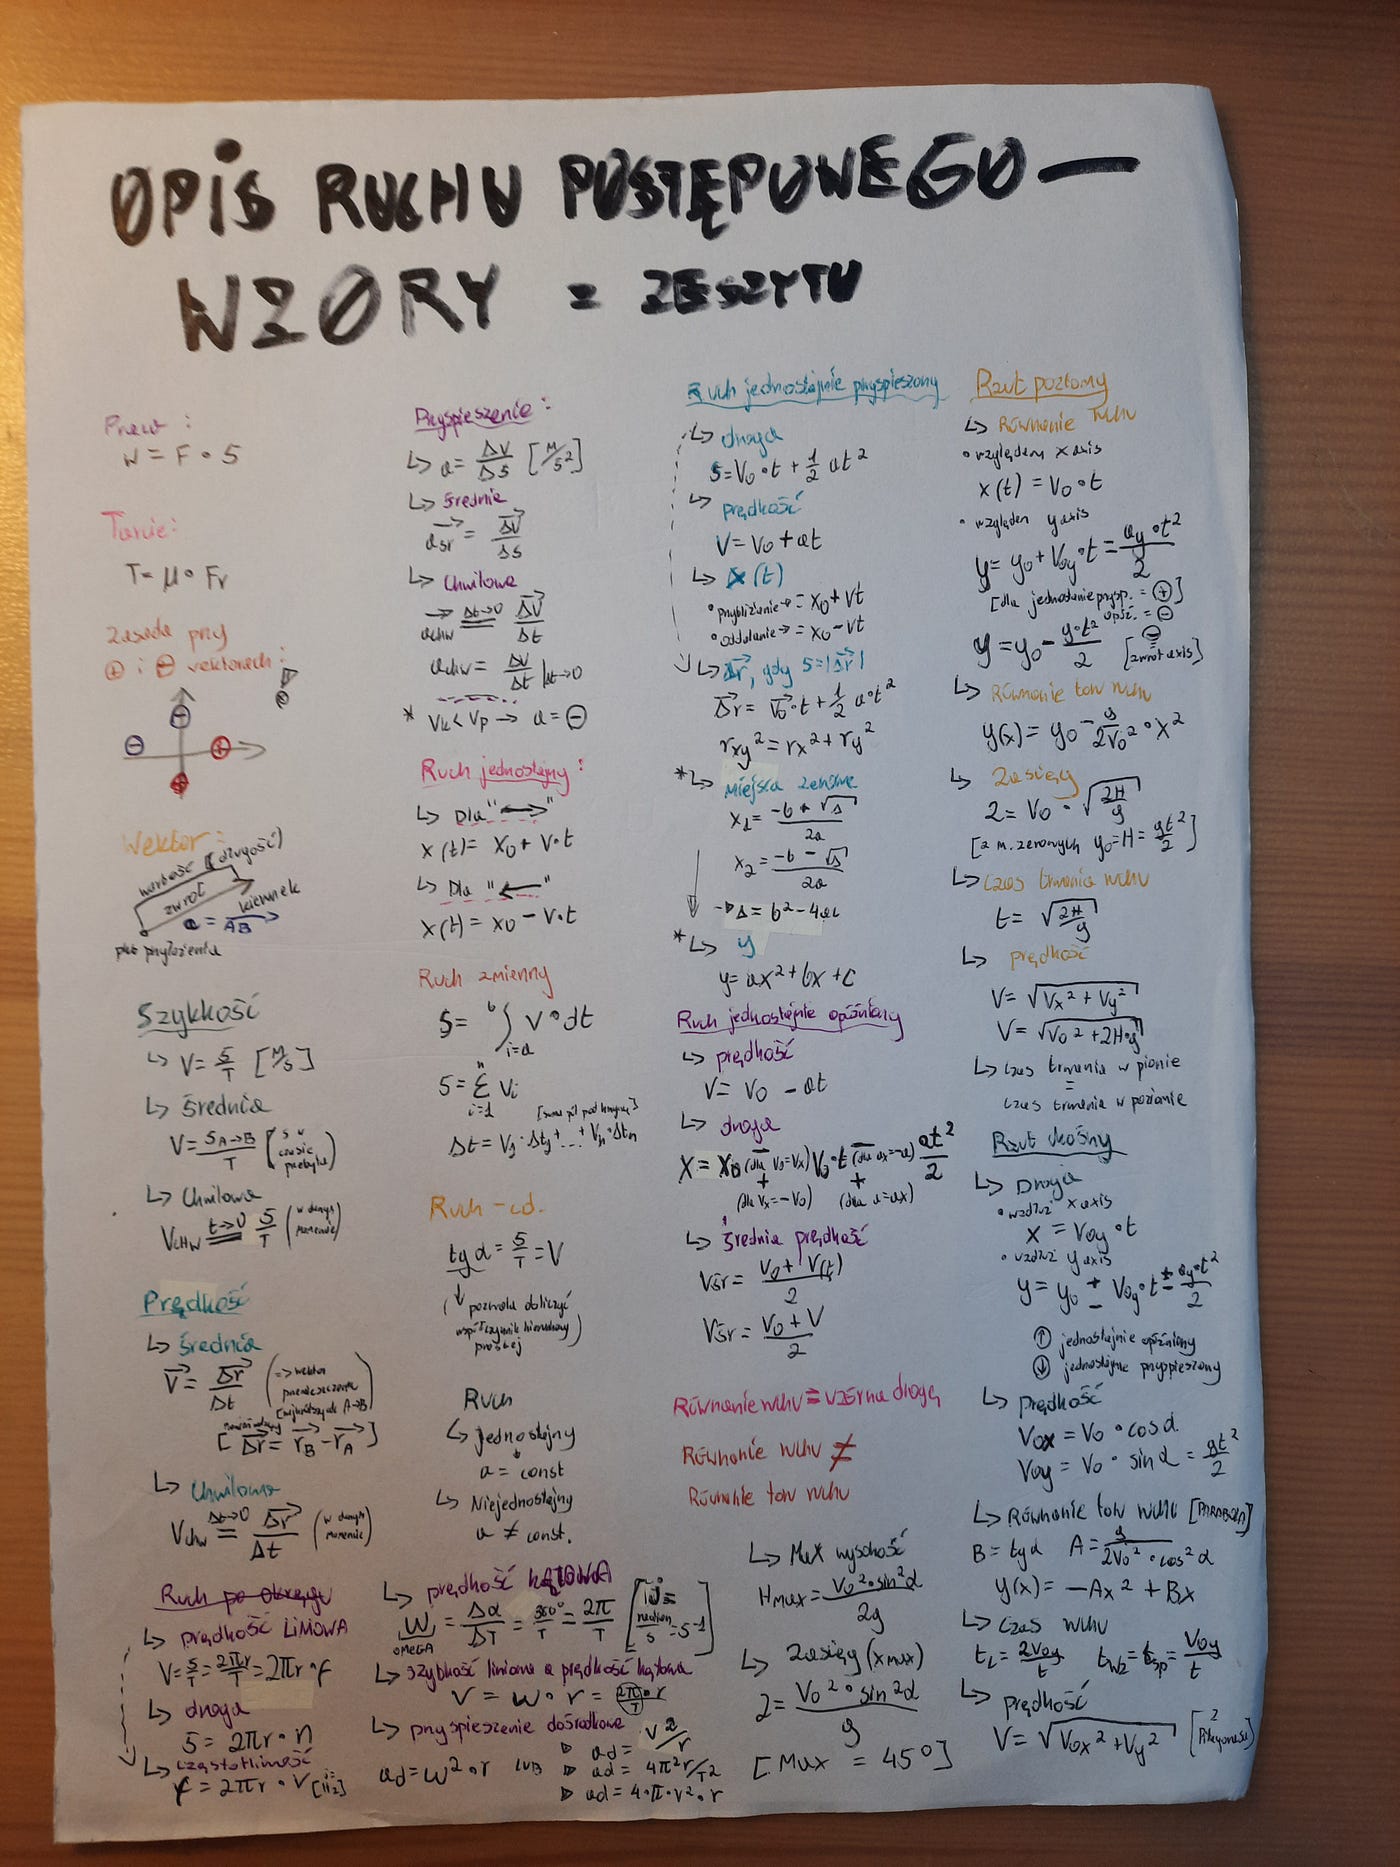 OPIS RUCHU POSTĘPOWEGO —
WZORY = ZESZYTU
Praca :
W = F • S
Tarcie:
T = μ • Fr
Zasada przy
⊕ i ⊖ wektorach :
⊖
⊖ ⊕
Wektor :
wartość (długość)
zwrot
kierunek
a = AB
pkt przyłożenia
Szybkość
↳ V = S/T [M/S]
↳ średnia
V = S A→B / T (S w czasie przebyta)
↳ Chwilowa
VCHW t→0 = S/T (w danym momencie)
Prędkość
↳ średnia
V = Δr/Δt (=> wektor przemieszczenia [najkrótszych A→B)
[Δr = rB - rA]
↳ Chwilowa
Vchw Δt→0 = Δr/Δt (w danym momencie)
Ruch po okręgu
↳ prędkość LINIOWA
V = S/T = 2πr/T = 2πr • f
↳ droga
S = 2πr • n
↳ częstotliwość
f = 2πr • V
Przyspieszenie :
↳ a = ΔV/ΔS [M/S²]
↳ średnie
aśr = ΔV/ΔS
↳ Chwilowe
achw Δt→0 = ΔV/Δt
achw = ΔV/Δt |Δt→0
* Vk < Vp → a = ⊖
Ruch jednostajny :
↳ Dla "⟷"
x(t) = x0 + V•t
↳ Dla "←"
x(t) = x0 - V•t
Ruch zmienny
S = b ∫ i=a V • dt
S = n Σ i=1 Vi
[suma pól pod krzywą]
Δt = V1 • Δt1 + ... + Vn • Δtn
Ruch - cd.
tg α = S/T = V
(↓ pozwala obliczyć
współczynnik kierunkowy
prostej)
Ruch
↳ jednostajny
a = const
↳ Niejednostajny
a ≠ const.
↳ prędkość KĄTOWA
W = Δα/ΔT = 360°/T = 2π/T [W = radian/s = s-1]
OMEGA
↳ szybkość liniowa a prędkość kątowa
V = W • r = 2π/T • r
↳ przyspieszenie dośrodkowe
ad = W² • r LUB ▷ ad = V²/r
▷ ad = 4π²r/T²
▷ ad = 4•π•v²•r
Ruch jednostajnie przyspieszony
↳ droga
S = V0 • t + 1/2 at²
↳ prędkość
V = V0 + at
↳ x(t)
• przybliżanie → = x0 + Vt
• oddalanie → = x0 - Vt
↳ Δr, gdy S = |Δr|
Δr = V0 • t + 1/2 a•t²
rxy² = rx² + ry²
* ↳ Miejsca zerowe
x1 = -b + √Δ / 2a
x2 = -b - √Δ / 2a
→ Δ = b² - 4ac
* ↳ y
y = ax² + bx + c
Ruch jednostajnie opóźniony
↳ prędkość
V = V0 - at
↳ droga
X = x0 (dla V0=Vx) V0 • t (dla ax=-a) at²/2
+ +
(dla Vx = -V0) (dla a = ax)
↳ średnia prędkość
Vśr = V0 + V(t) / 2
Vśr = V0 + V / 2
Równanie ruchu = wzór na drogę
Równanie ruchu ≠
Równanie toru ruchu
↳ Max wysokość
Hmax = V0² • sin²α / 2g
↳ Zasięg (x max)
Z = V0² • sin²α / g
[Max = 45°]
Rzut poziomy
↳ Równanie ruchu
• względem x axis
x(t) = V0 • t
• względem y axis
y = y0 + Voy • t = ay • t² / 2
[dla jednostanie przysp. = ⊕]
opóź. = ⊖
y = y0 - g•t² / 2 [zwrot axis]
↳ Równanie toru ruchu
y(x) = y0 - g/2V0² • x²
↳ Zasięg
Z = V0 • √2H/g
[z m. zerowych y0 = H = gt²/2]
↳ Czas trwania ruchu
t = √2H/g
↳ prędkość
V = √Vx² + Vy²
V = √V0² + 2H•g
↳ czas trwania w pionie
=
czas trwania w poziomie
Rzut ukośny
↳ Droga
• wzdłuż x axis
x = Voy • t
• wzdłuż y axis
y = y0 ± Voy • t ± ay•t²/2
↑ jednostajnie opóźniony
↓ jednostajnie przyspieszony
↳ prędkość
Vox = V0 • cosα
Voy = V0 • sinα = gt²/2
↳ Równanie toru ruchu [PARABOLA]
B = tgα A = g/2V0² • cos²α
y(x) = -Ax² + Bx
↳ Czas ruchu
tc = 2Voy/t twz = tsp = Voy/t
↳ prędkość
V = √Vox² + Vy² [z Pitagorasa]